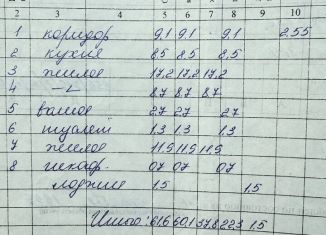 2 3 4 5 6 7 8 9 10
1 коридор 9,1 9,1 - 9,1 2.55
2 кухня 8,5 8,5 8,5
3 жилая 17,2 17,2 17,2
4 -"- 8,7 8,7 8,7
5 ванная 2,7 2,7 2,7
6 туалет 1.3 1.3 1.3
7 жилая 11,9 11,9 11,9
8 шкаф 0,7 0,7 0,7
лоджия 1.5 1.5
Итого: 61,6 60,1 37,8 22,3 1.5